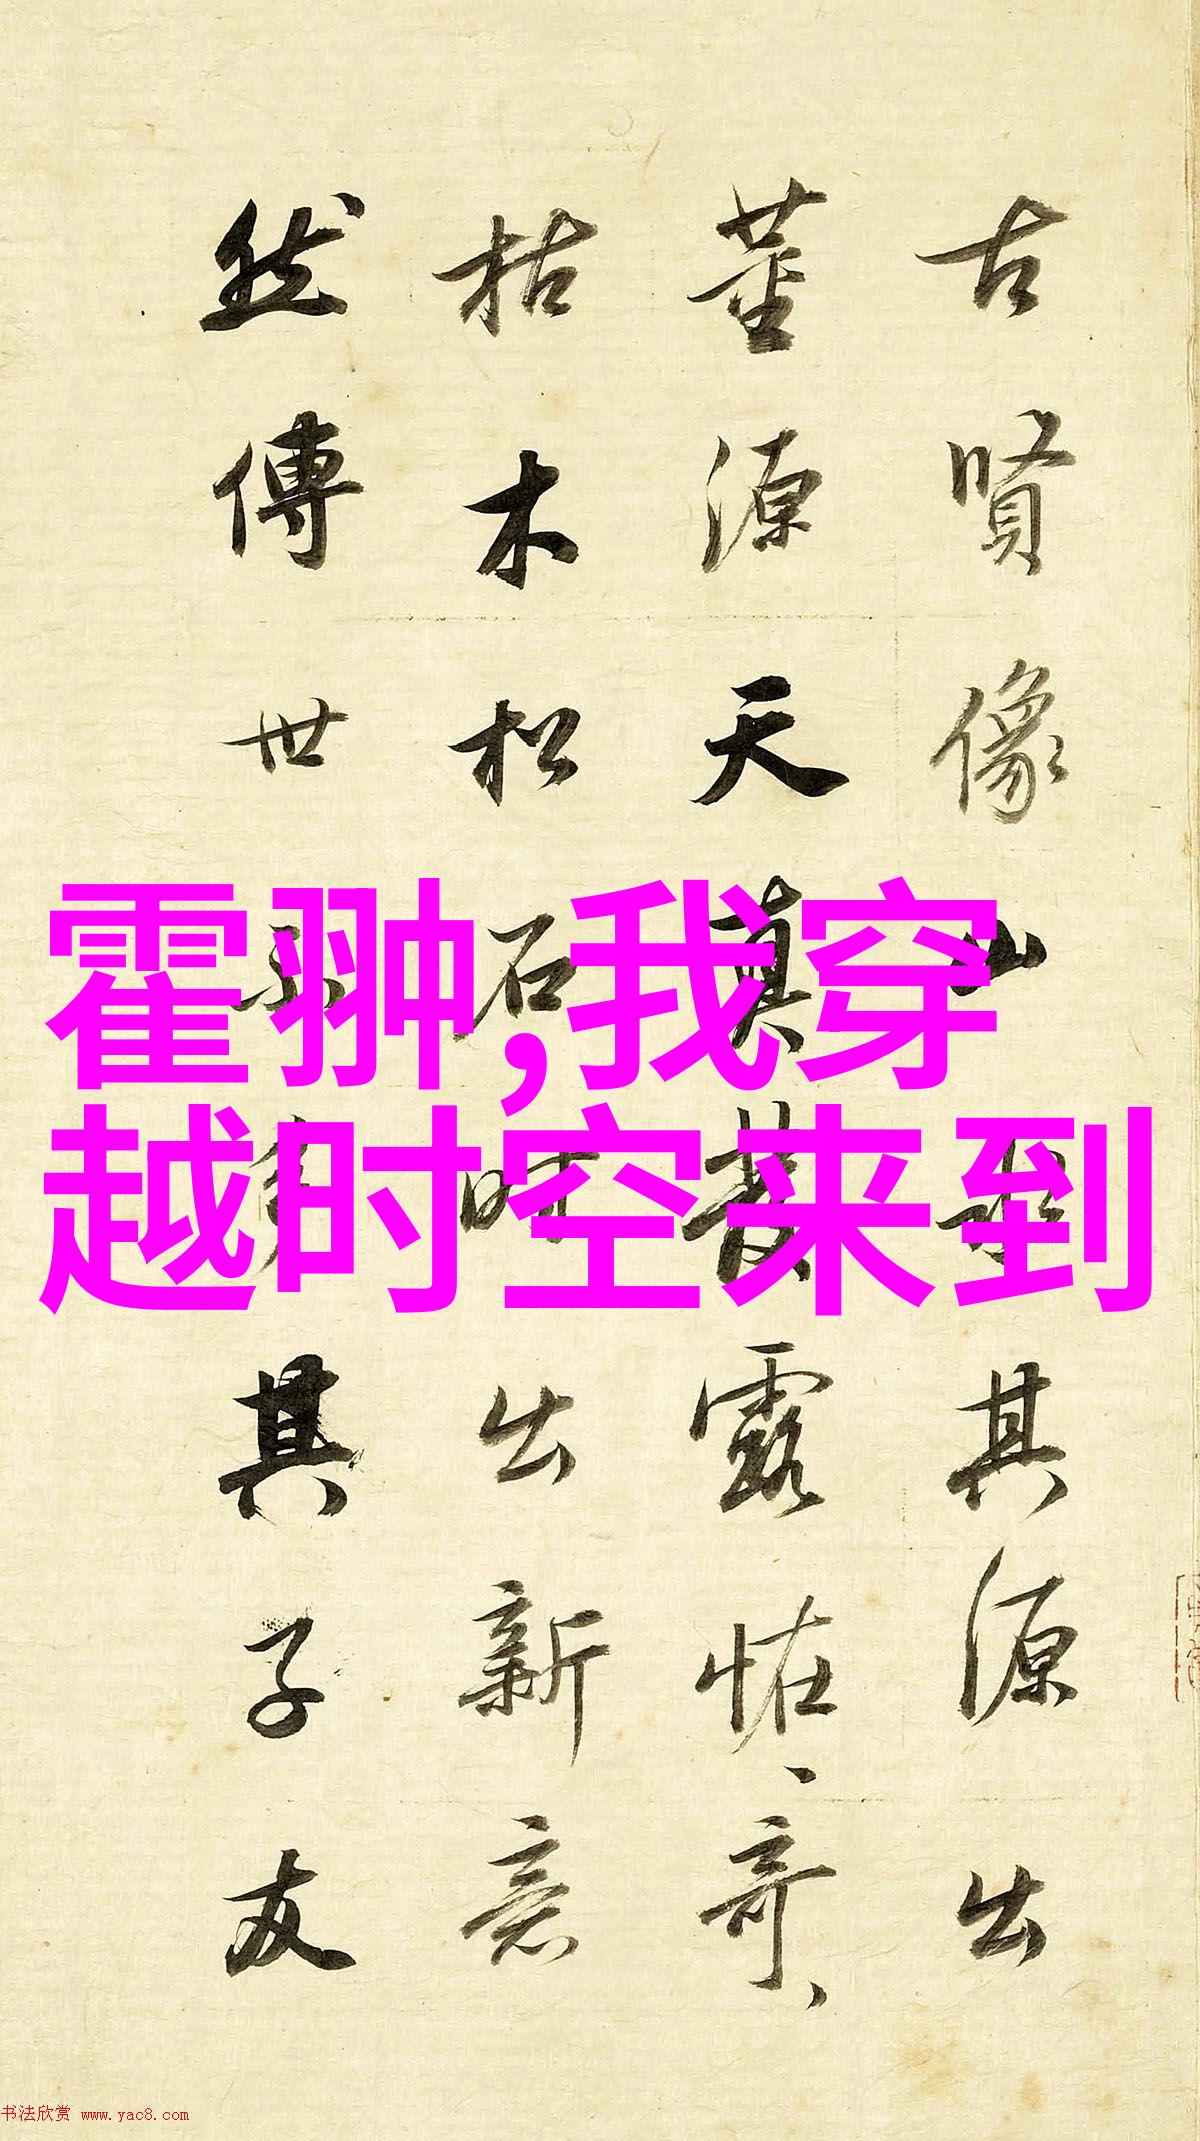 古賢像山水其源出
董源天真叢露恠、奇、
枯木松石時出新意
然傳世
其子友
霍翀,我穿
越时空来到
书法欣赏 www.yac8.com